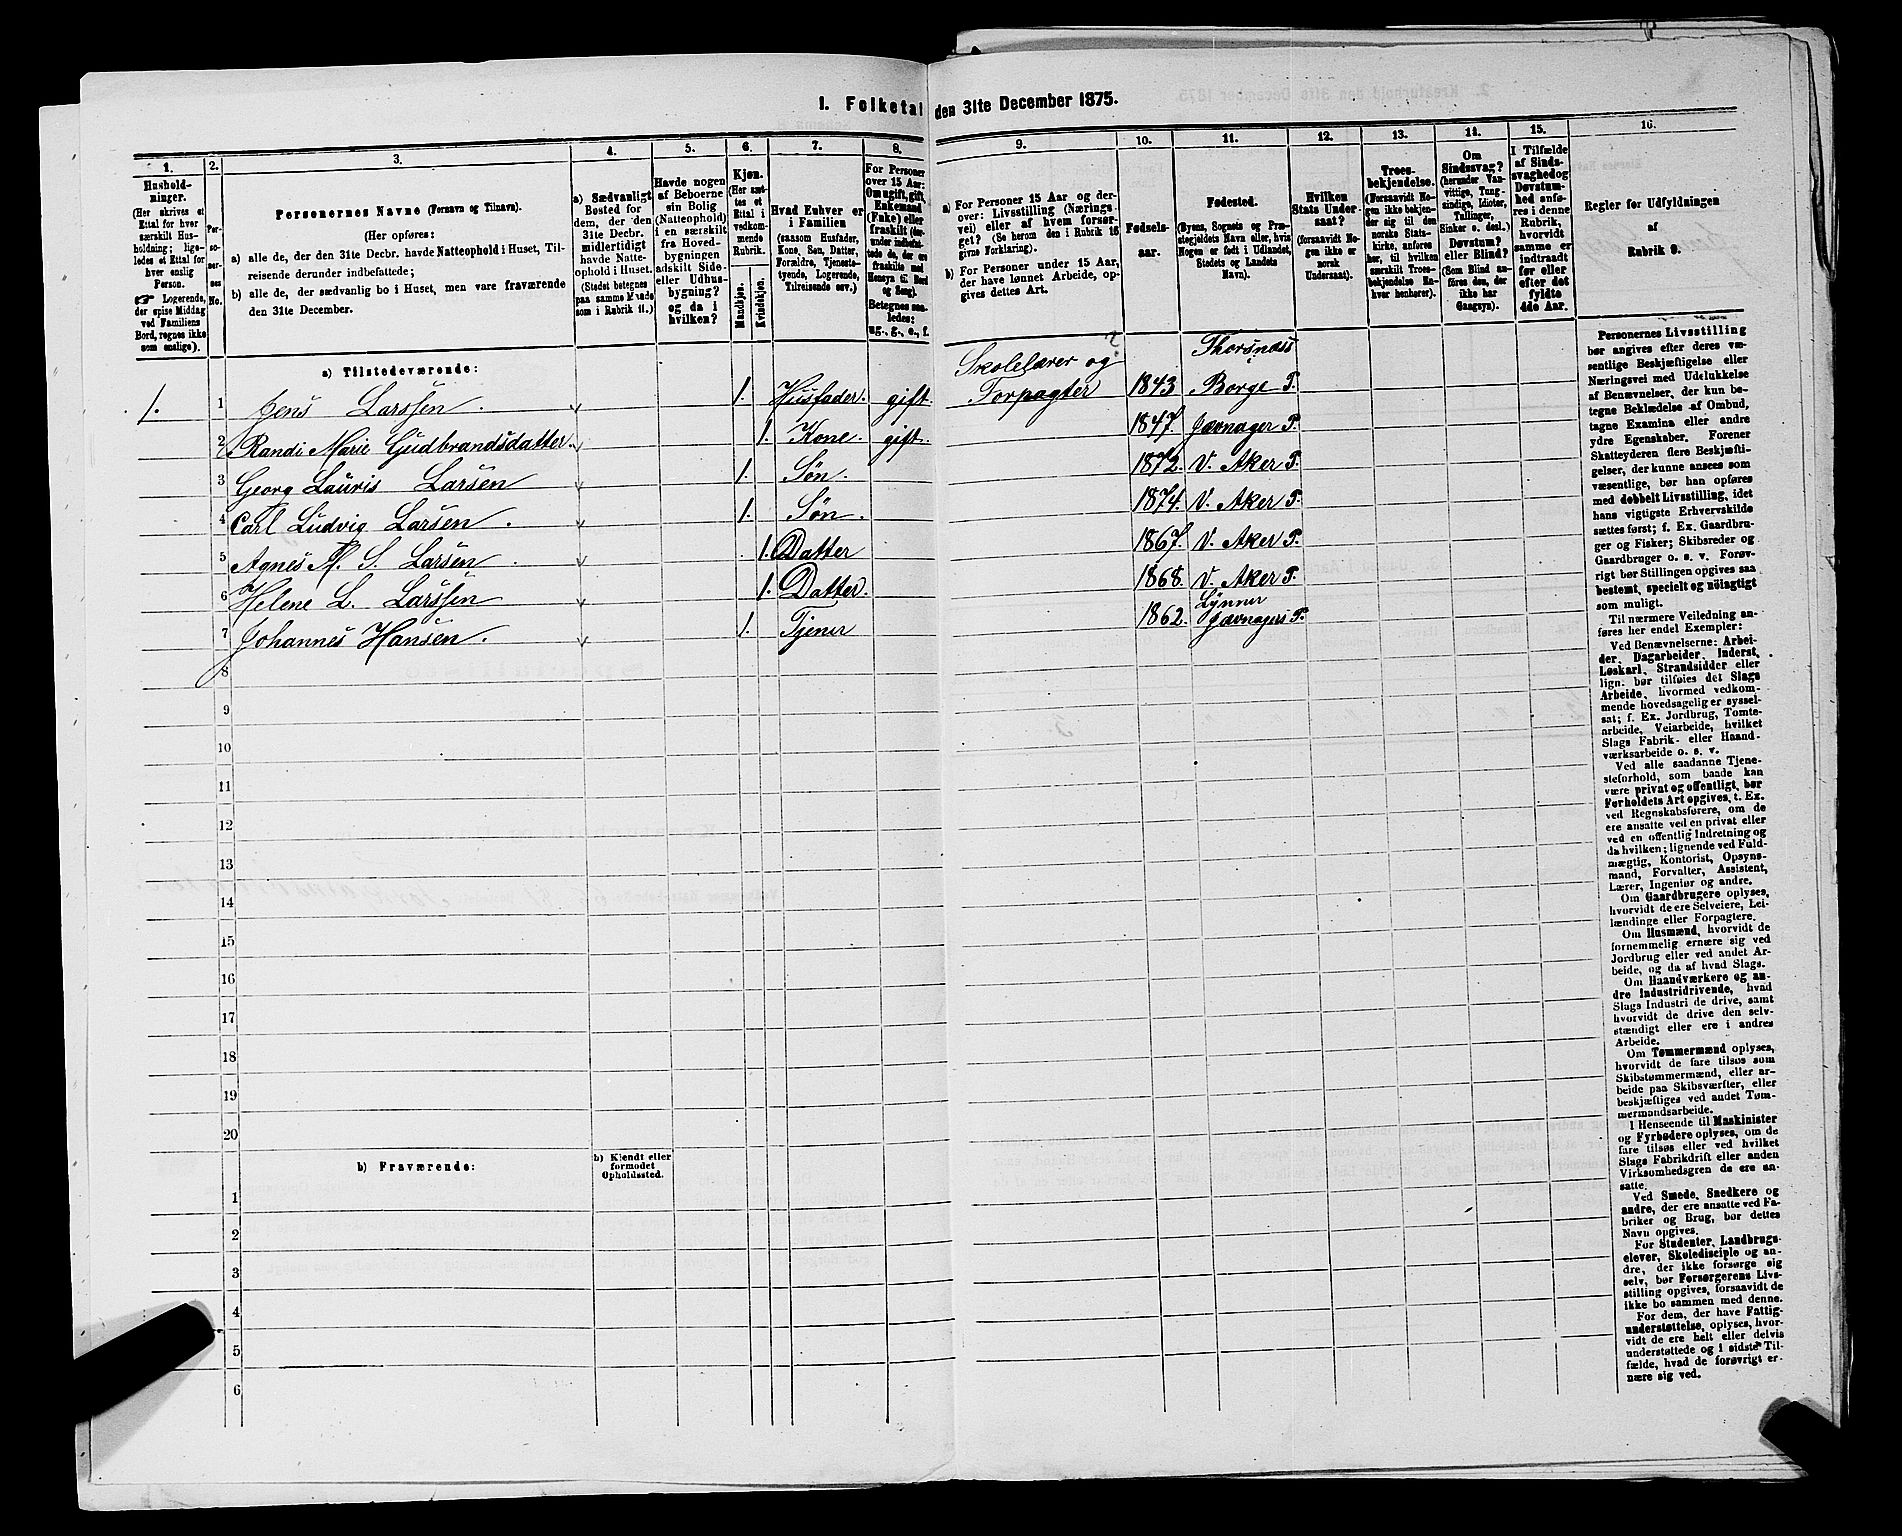 1. Folketal den 31te December 1875.
1.
2.
3.
4.
5.
6.
7.
8.
9.
10.
11.
12.
13.
14.
15.
16.
Hushold-
ninger.
(Her skrives et
Ettal for hver
særskilt Hus-
holdning; lige-
ledes et Ettal for
hver enslig
Person.
☞ Logerende,
der spise Middag
ved Familiens
Bord, regnes ikke
som enslige).
Per-
so-
ner-
nes
No.
Personernes Navne (Fornavn og Tilnavn).
(Her opføres:
a) alle de, der den 31te Decbr. havde Natteophold i Huset, Til-
reisende derunder indbefattede;
b) alle de, der sædvanlig bo i Huset, men vare fraværende
den 31te December.
a) Sædvanligt
Bosted for
dem, der den
31te Decbr.
midlertidigt
havde Natte-
ophold i Huset.
(Stedet betegnes
paa samme Maade
som i Rubrik 11.)
Havde nogen
af Beboerne
sin Bolig
(Natteophold)
i en særskilt
fra Hoved-
bygningen
adskilt Side-
eller Udhus-
bygning?
og da i
hvilken?
Kjøn.
(Her sæt-
tes et
Ettal i
vedkom-
mende
Rubrik.
Mandkjøn.
Kvindekjøn.
Hvad Enhver er
i Familien
(saasom Husfader,
Kone, Søn, Datter,
Forældre, Tjeneste-
tyende, Logerende,
Tilreisende osv.)
For Personer
over 15 Aar:
Om ugift, gift,
Enkemand
(Enke) eller
fraskilt (der-
under indbefat-
tede de, der ere
fraskilte med
Hensyn til Bord
og Seng).
Betegnes saa-
ledes:
ug., g., e., f.
a) For Personer 15 Aar og der-
over: Livsstilling (Nærings-
vei) eller af hvem forsør-
get? (Se herom den i Rubrik 16
givne Forklaring).
b) For Personer under 15 Aar,
der have lønnet Arbeide, op-
gives dettes Art.
Fødsels-
aar.
Fødested.
(Byens, Sognets og Præ-
stegjeldets Navn eller, hvis
Nogen er født i Udlandet,
Stedets og Landets
Navn).
Hvilken
Stats Under-
saat?
(forsaavidt No-
gen ikke er
norsk
Undersaat).
Troes-
bekjendelse.
(Forsaavidt No-
gen ikke bekjen-
der sig til den
norske Stats-
kirke, anføres
her, til hvilken
særskilt Troes-
bekjendelse En-
hver henhører).
Om
Sindssvag?
(herunder Van-
vittige, Tung-
sindige, Idioter,
Tullinger,
Sinker o. desl.)
Døvstum?
eller Blind?
(Som Blind an-
føres den, der
ikke har
Gangsyn).
I Tilfælde
af Sinds-
svaghed og
Døvstum-
hed anfø-
res i denne
Rubrik,
hvorvidt
samme er
indtraadt
før eller
efter det
fyldte
4de Aar.
Regler for Udfyldningen
af
Rubrik 9.
a) Tilstedeværende:
1. 1 Jens Larssen. 1. Husfader. gift. Skolelærer og Forpagter 1843 Thorsnæs Borge P.
2 Randi Marie Gudbrandsdatter. 1. Kone. gift. 1847. Jævnager P.
3 Georg Lauris Larsen 1. Søn. 1872. V. Aker P.
4 Carl Ludvig Larsen. 1. Søn. 1874. V. Aker P.
5 Agnes M. S. Larsen 1. Datter 1867. V. Aker P.
6 Helene L. Larssen 1. Datter. 1868. V. Aker P.
7 Johannes Hansen. 1. Tjener 1862. Lynner Jævnagers P.
8
9
10
11
12
13
14
15
16
17
18
19
20
b) Fraværende:
b) Kjendt eller
formodet
Opholdssted.
1
2
3
4
5
6
Personernes Livsstilling
bør angives efter deres væ-
sentlige Beskjæftigelse eller
Næringsvei med Udelukkelse
af Benævnelser, der kun be-
tegne Beklædelse af Ombud,
tagne Examina eller andre
ydre Egenskaber. Forener
Skatteyderen flere Beskjæfti-
gelser, der kunne ansees som
væsentlige, bør han opføres
med dobbelt Livsstilling, idet
hans vigtigste Erhvervskilde
sættes først; f. Ex. Gaardbru-
ger og Fisker; Skibsreder og
Gaardbruger o. s. v. Forøv-
rigt bør Stillingen opgives saa
bestemt, specielt og nøiagtigt
som muligt.
Til nærmere Veiledning an-
føres her endel Exempler:
Ved Benævnelserne: Arbei-
der, Dagarbeider, Inderst,
Løskarl, Strandsidder eller
lign: bør tilføies det Slags
Arbeide, hvormed vedkom-
mende hovedsagelig er syssel-
sat; f. Ex. Jordbrug, Tomte-
arbeide, Veiarbeide, hvilket
Slags Fabrik- eller Haand-
værksarbeide o. s. v.
Ved alle saadanne Tjene-
steforhold, som baade kan
være privat og offentligt, bør
Forholdets Art opgives, t. Ex.
ved Regnskabsførere, om de
ere ansatte ved en privat eller
ved en offentlig Indretning og
da hvilken; lignende ved Fuld-
mægtig, Kontorist, Opsyns-
mand, Forvalter, Assistent,
Lærer, Ingeniør og andre.
Om Gaardbrugere oplyses,
hvorvidt de ere Selveiere, Lei-
lændinge eller Forpagtere.
Om Husmænd, hvorvidt de
fornemmelig ernære sig ved
Jordbrug eller ved andet Ar-
beide, og da af hvad Slags.
Om Haandværkere og an-
dre Industridrivende, hvad
Slags Industri de drive, samt
hvorvidt de drive den selv-
stændigt eller ere i andres
Arbeide.
Om Tømmermænd oplyses,
hvorvidt de fare tilsøs som
Skibstømmermænd, eller ar-
beide paa Skibsværfter, eller
beskjæftiges ved andet Tøm-
mermandsarbeide.
I Henseende til Maskinister
og Fyrbødere oplyses, om de
fare tilsøs eller ved hvilket
Slags Fabrikdrift eller anden
Virksomhedsgren de ere an-
satte.
Ved Smede, Snedkere og
andre, der ere ansatte ved Fa-
briker og Brug, bør dettes
Navn opgives.
For Studenter, Landbrugs-
elever, Skoledisciple og an-
dre, der ikke forsørge sig
selv, bør Forsørgerens Livs-
stilling opgives, forsaavidt de
ikke bo sammen med denne.
For dem, der have Fattig-
understøttelse, oplyses, hvor-
vidt de ere helt eller delvis
understøttede og i sidste Til-
fælde, hvad de forøvrigt er-
nære sig ved.